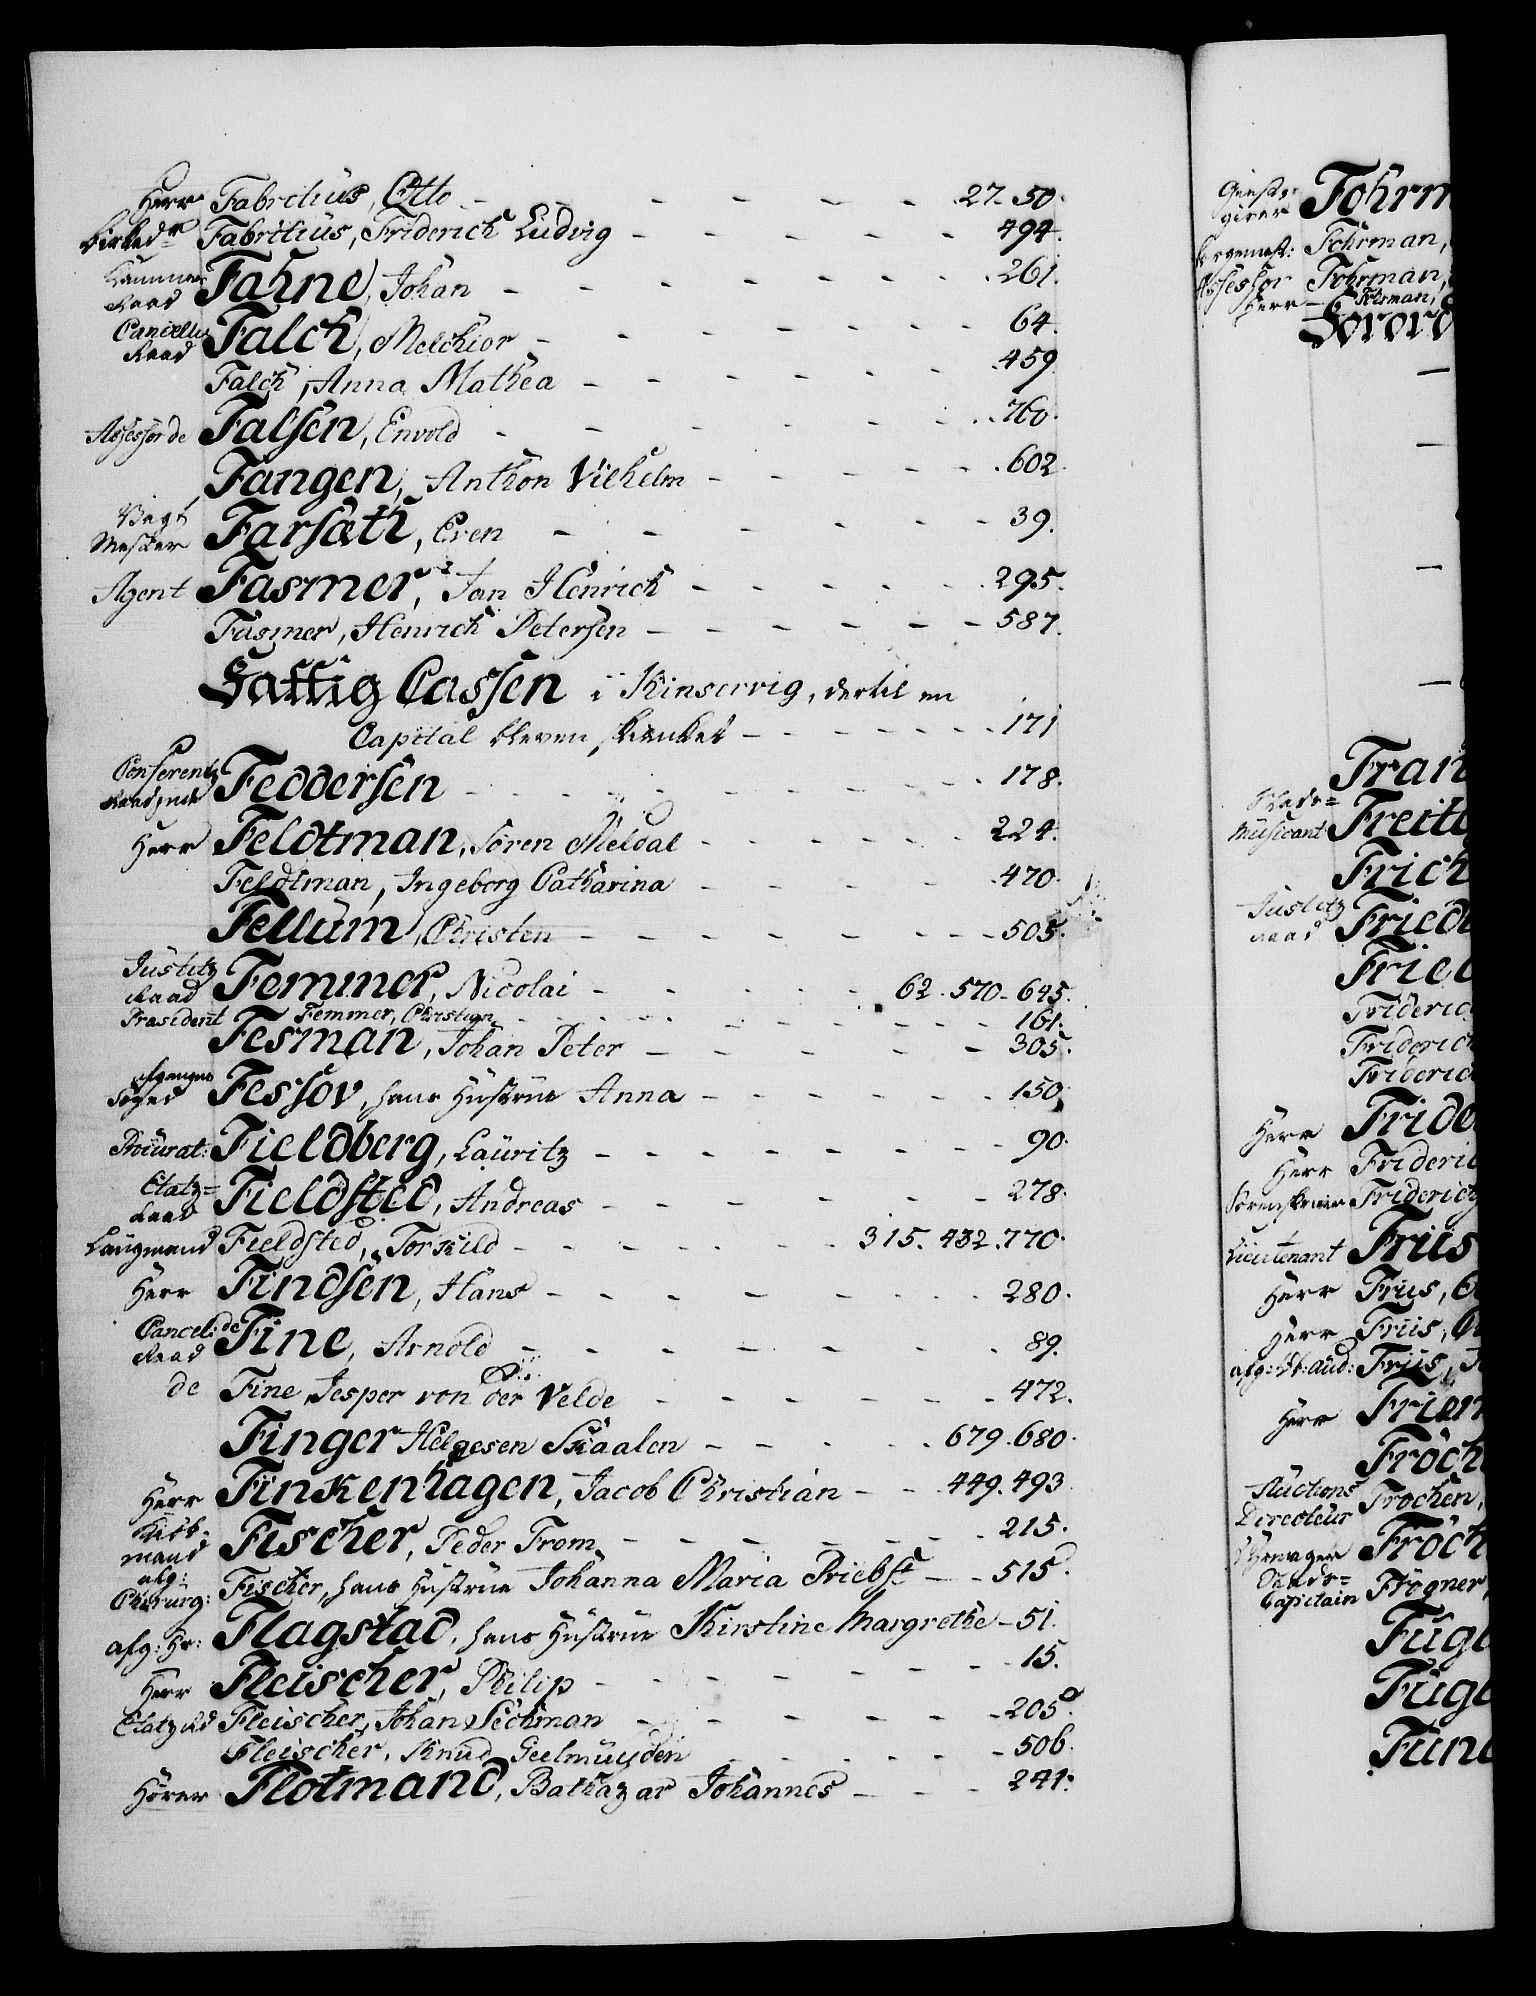 Herr Fabritius, Otto - - - - - 27. 50.
Fabritius, Friderich Ludvig - - - - - - 494.
Kammer
Raad Fahne, Johan - - - - - - - - 261.
Cancellie
Raad Falch, Melchior - - - - - - - 64.
Falch, Anna Mathea - - - - - - 459
Assessor de Falsen, Envold - - - - - - 760.
Fangen, Anthon Vilhelm - - - - - 602.
Vagt
Mester Farsæth, Even - - - - - - 39.
Agent Fasmer, Jan Henrich - - - - - - 295.
Fasmer, Henrich Petersen - - - - - - 587.
Fattig Cassen i Kinservig, dertil en
Capital bleven skenket - - - - - - 171
Conferentz
Raadinde Feddersen - - - - - - - 178.
Herr Feldtman, Søren Meldal - - - - - - 224.
Feldtman, Ingeborg Catharina - - - - - 470.
Fellum, Christen - - - - - - - 505.
Justitz
Raad Femmer, Nicolai - - - - - 62. 570. 645.
Præsident Femmer, Christian - - - - - - - 161.
Fesman, Johan Peter - - - - - - 305.
afgangne
Foged Fessov, hans Hustrue Anna - - - - - - 150
Procurat: Fieldberg, Lauritz - - - - - - - 90.
Etatz=
Raad Fieldsted, Andreas - - - - - - 278.
Laugmand Fieldsted, Torkild - - - - - - 315. 432. 770.
Herr Findsen, Hans - - - - - - - 280.
Cancel:
Raad de Fine, Arnold - - - - - - - 89.
de Fine Jesper von der Velde - - - - - 472.
Finger Helgesen Skaalen - - - - 679. 680.
Herr Finkenhagen, Jacob Christian - - - 449. 493
Kiøb-
mand Fischer, Peder From - - - - - - 215.
afg:
Chirurg: Fischer, hans Hustrue Johanna Maria Priebst - - 515.
afg: Hr: Flagstad, hans Hustrue Kirstine Margrethe - 51.
Herr Fleischer, Philip - - - - - - - 15.
Etatz Rd Fleischer, Johan Seckman - - - - - - 205.
Fleischer, Knud Geelmuyden - - - - - - 506.
Hører Flotmand, Bathazar Johannes - - - - 241.
Fohrm
Fohrman,
Assessor Fohrman,
Herr - Fohrman,
Fran
Stads=
Musicant Freitt
Frich
Justitz
Raad Fried
Fried
Frideric
Friderich
Frideric
Herr Fride
Herr Frideric
Sorenskriver Friderich
Lieutenant Friis
Herr Friis,
Herr Friis,
Friis,
Herr
Fröch
Auctions
Directeur Frochen,
Fröch
Capitain Frogner,
Fugl
Fugl